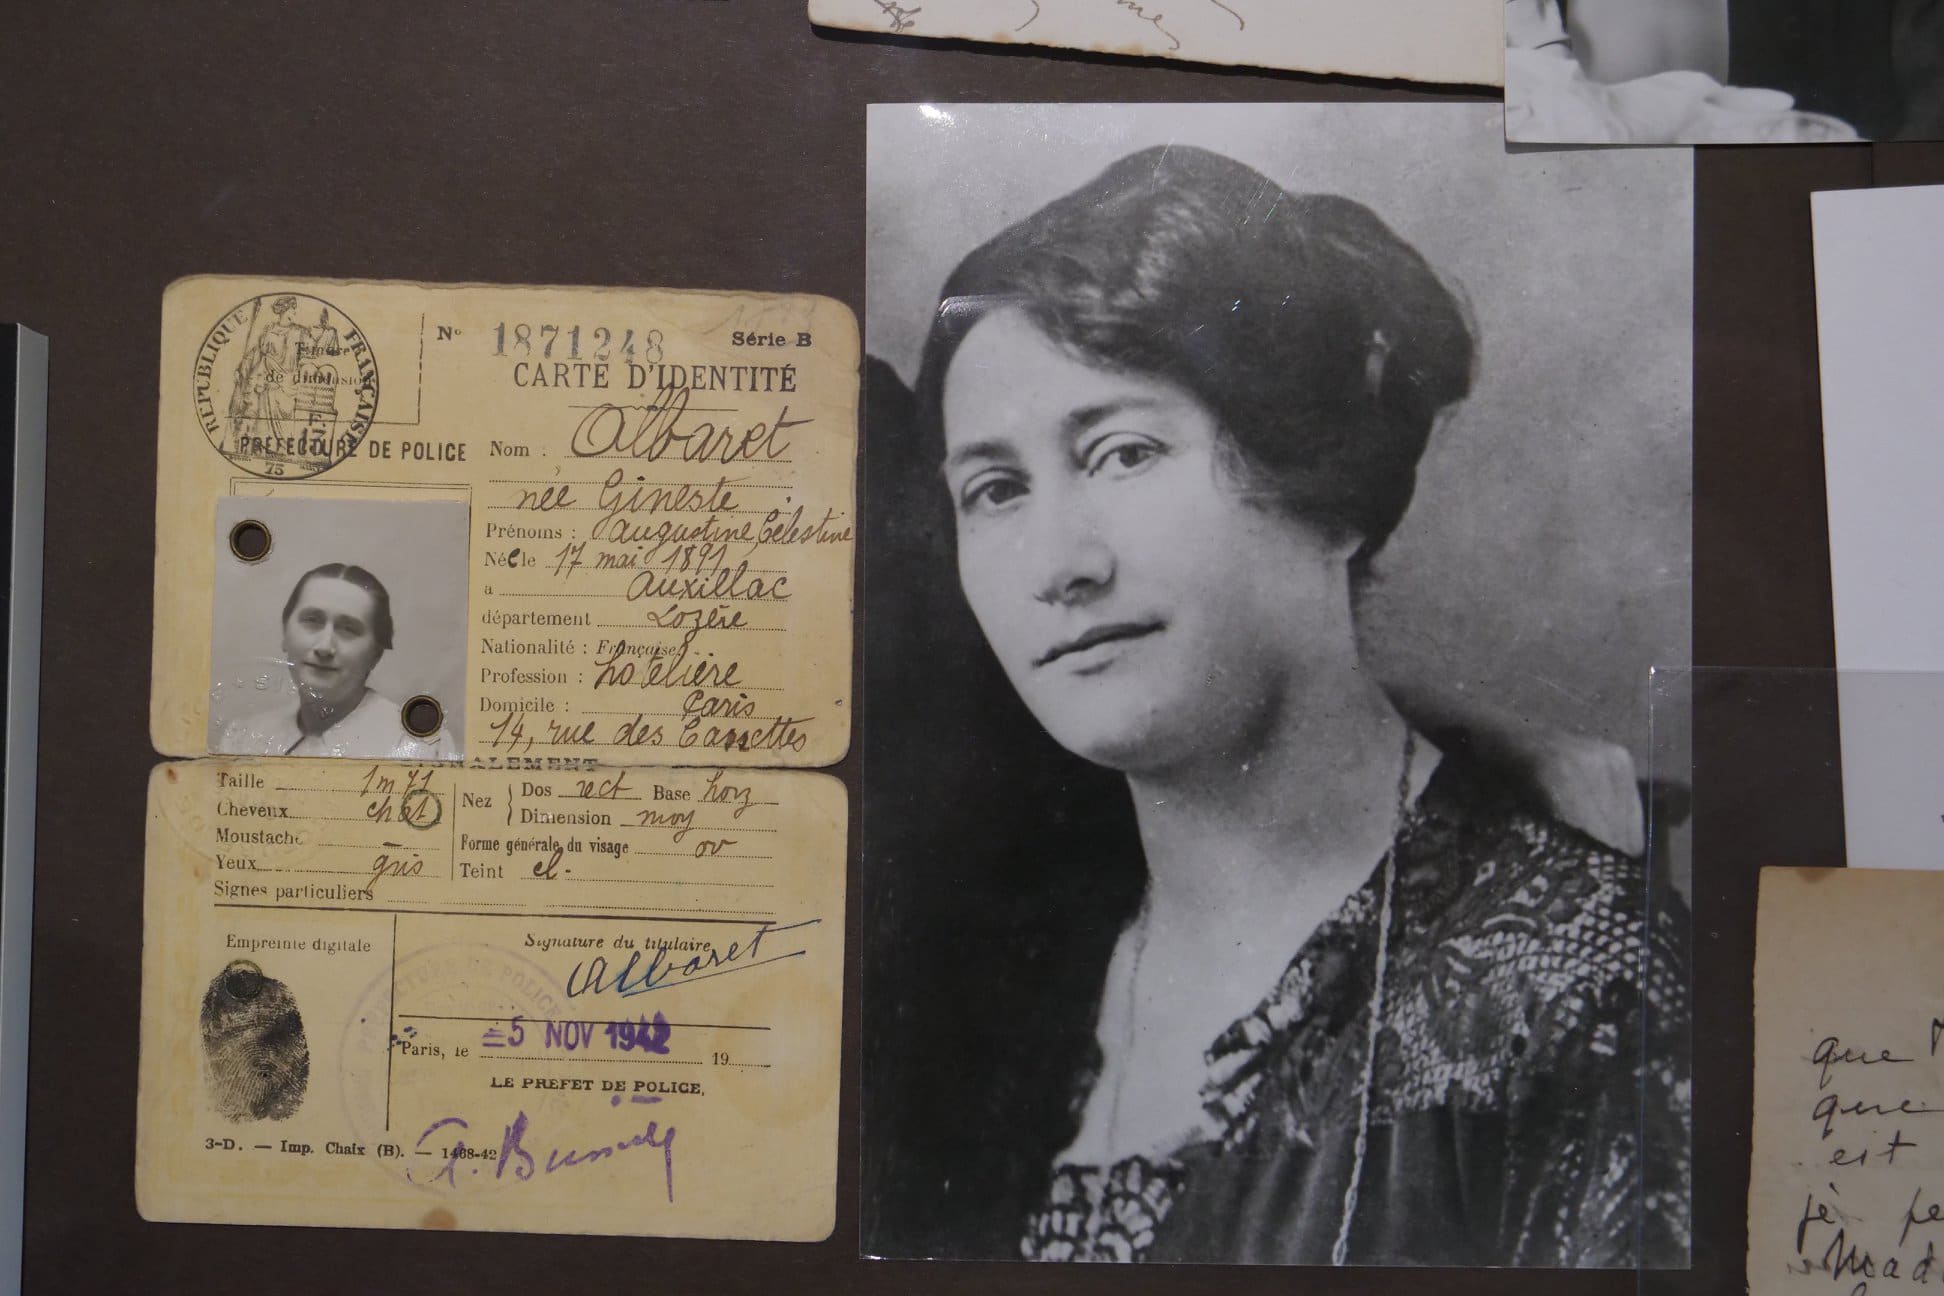 RÉPUBLIQUE FRANÇAISE
Timbre
de dimension
F.
75
PREFECTURE DE POLICE
N° 1871248 Série B
CARTE D'IDENTITÉ
Nom : Albaret
née Gineste
Prénoms : Augustine Célestine
Née le 17 mai 1891
a Auxillac
département Lozère
Nationalité : Française
Profession : hotelière
Domicile : Paris
14, rue des Canettes
SIGNALEMENT
Taille 1m71
Cheveux chat
Moustache –
Yeux gris
Signes particuliers
Nez Dos rect Base horz
Dimension moy
Forme générale du visage ov
Teint cl.
Empreinte digitale
Signature du titulaire
Albaret
PREFECTURE DE POLICE
Paris, le 5 NOV 1942 19
LE PREFET DE POLICE,
3-D. — Imp. Chaix (B). — 1468-42
que
que
est
je
Mad